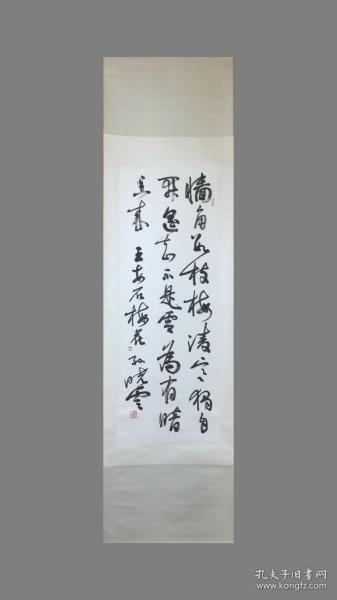 墙角数枝梅凌寒独自
開遥知不是雪為有暗
香来 王安石梅花 孙晓云
孔夫子旧书网
www.kongfz.com